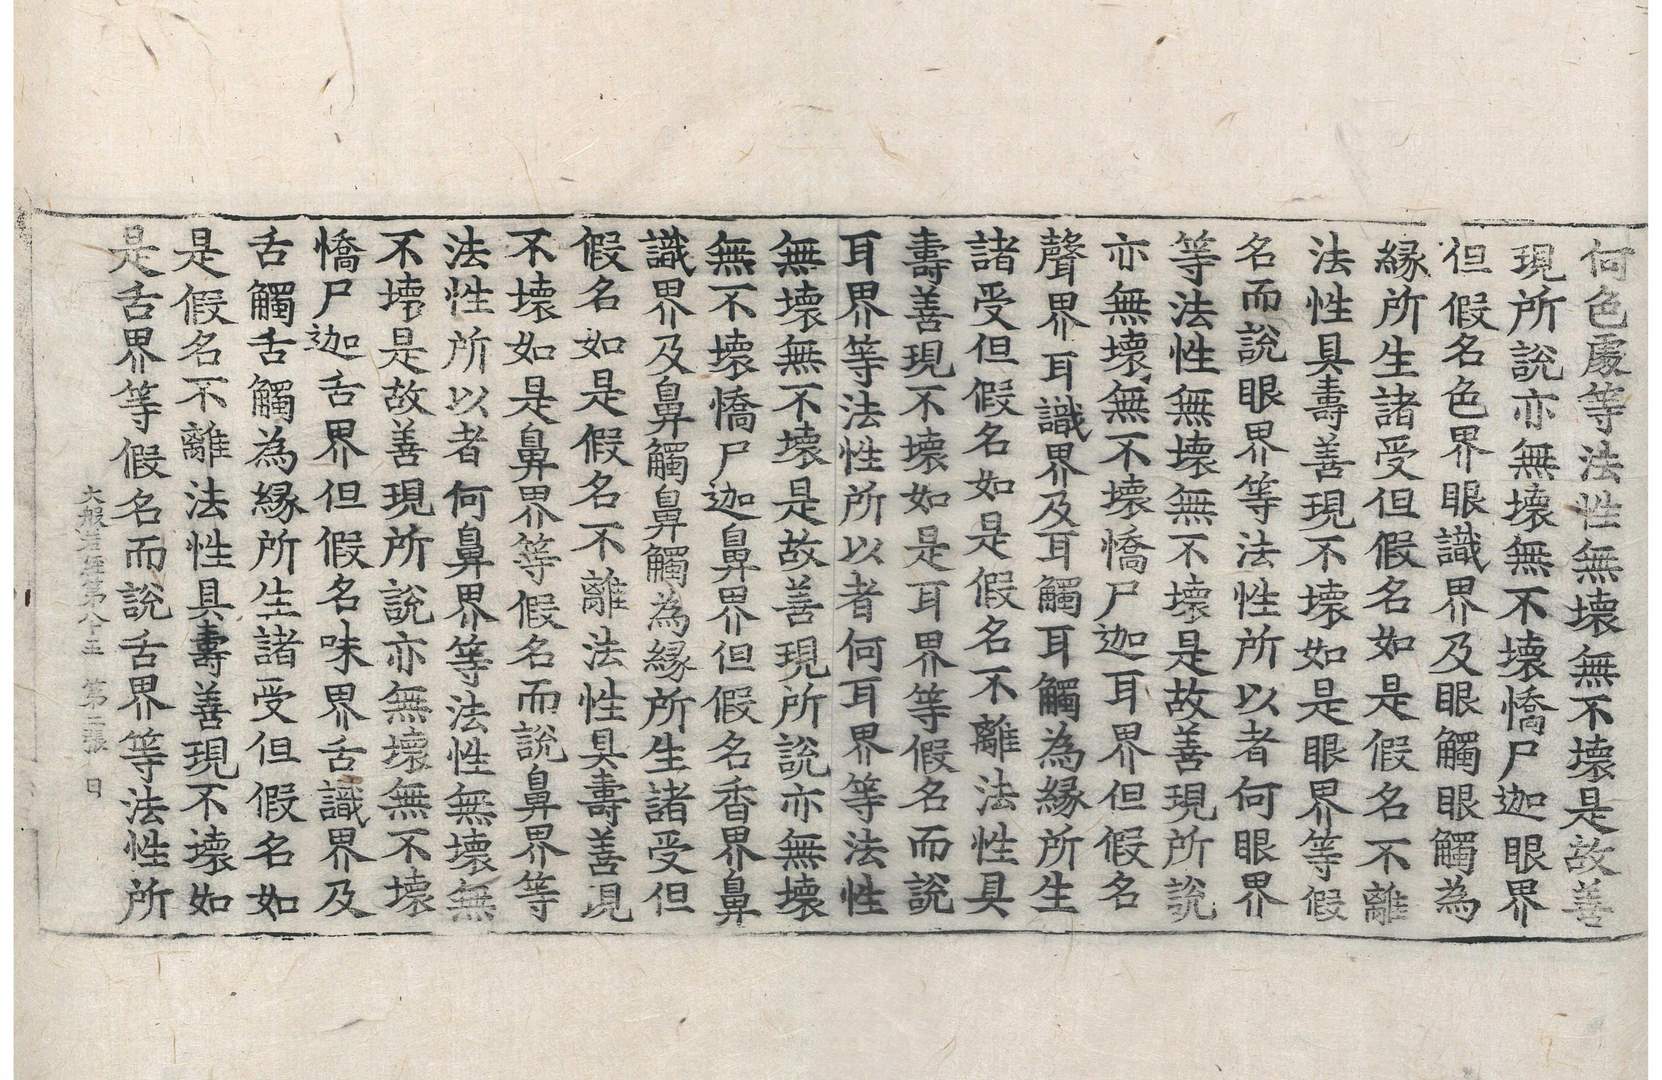 何色處等法性無壞無不壞是故善
現所說亦無壞無不壞憍尸迦眼界
但假名色界眼識界及眼觸眼觸為
緣所生諸受但假名如是假名不離
法性具壽善現不壞如是眼界等假
名而說眼界等法性所以者何眼界
等法性無壞無不壞是故善現所說
亦無壞無不壞憍尸迦耳界但假名
聲界耳識界及耳觸耳觸為緣所生
諸受但假名如是假名不離法性具
壽善現不壞如是耳界等假名而說
耳界等法性所以者何耳界等法性
無壞無不壞是故善現所說亦無壞
無不壞憍尸迦鼻界但假名香界鼻
識界及鼻觸鼻觸為緣所生諸受但
假名如是假名不離法性具壽善現
不壞如是鼻界等假名而說鼻界等
法性所以者何鼻界等法性無壞無
不壞是故善現所說亦無壞無不壞
憍尸迦舌界但假名味界舌識界及
舌觸舌觸為緣所生諸受但假名如
是假名不離法性具壽善現不壞如
是舌界等假名而說舌界等法性所
大般若經第八十五 第二張 日